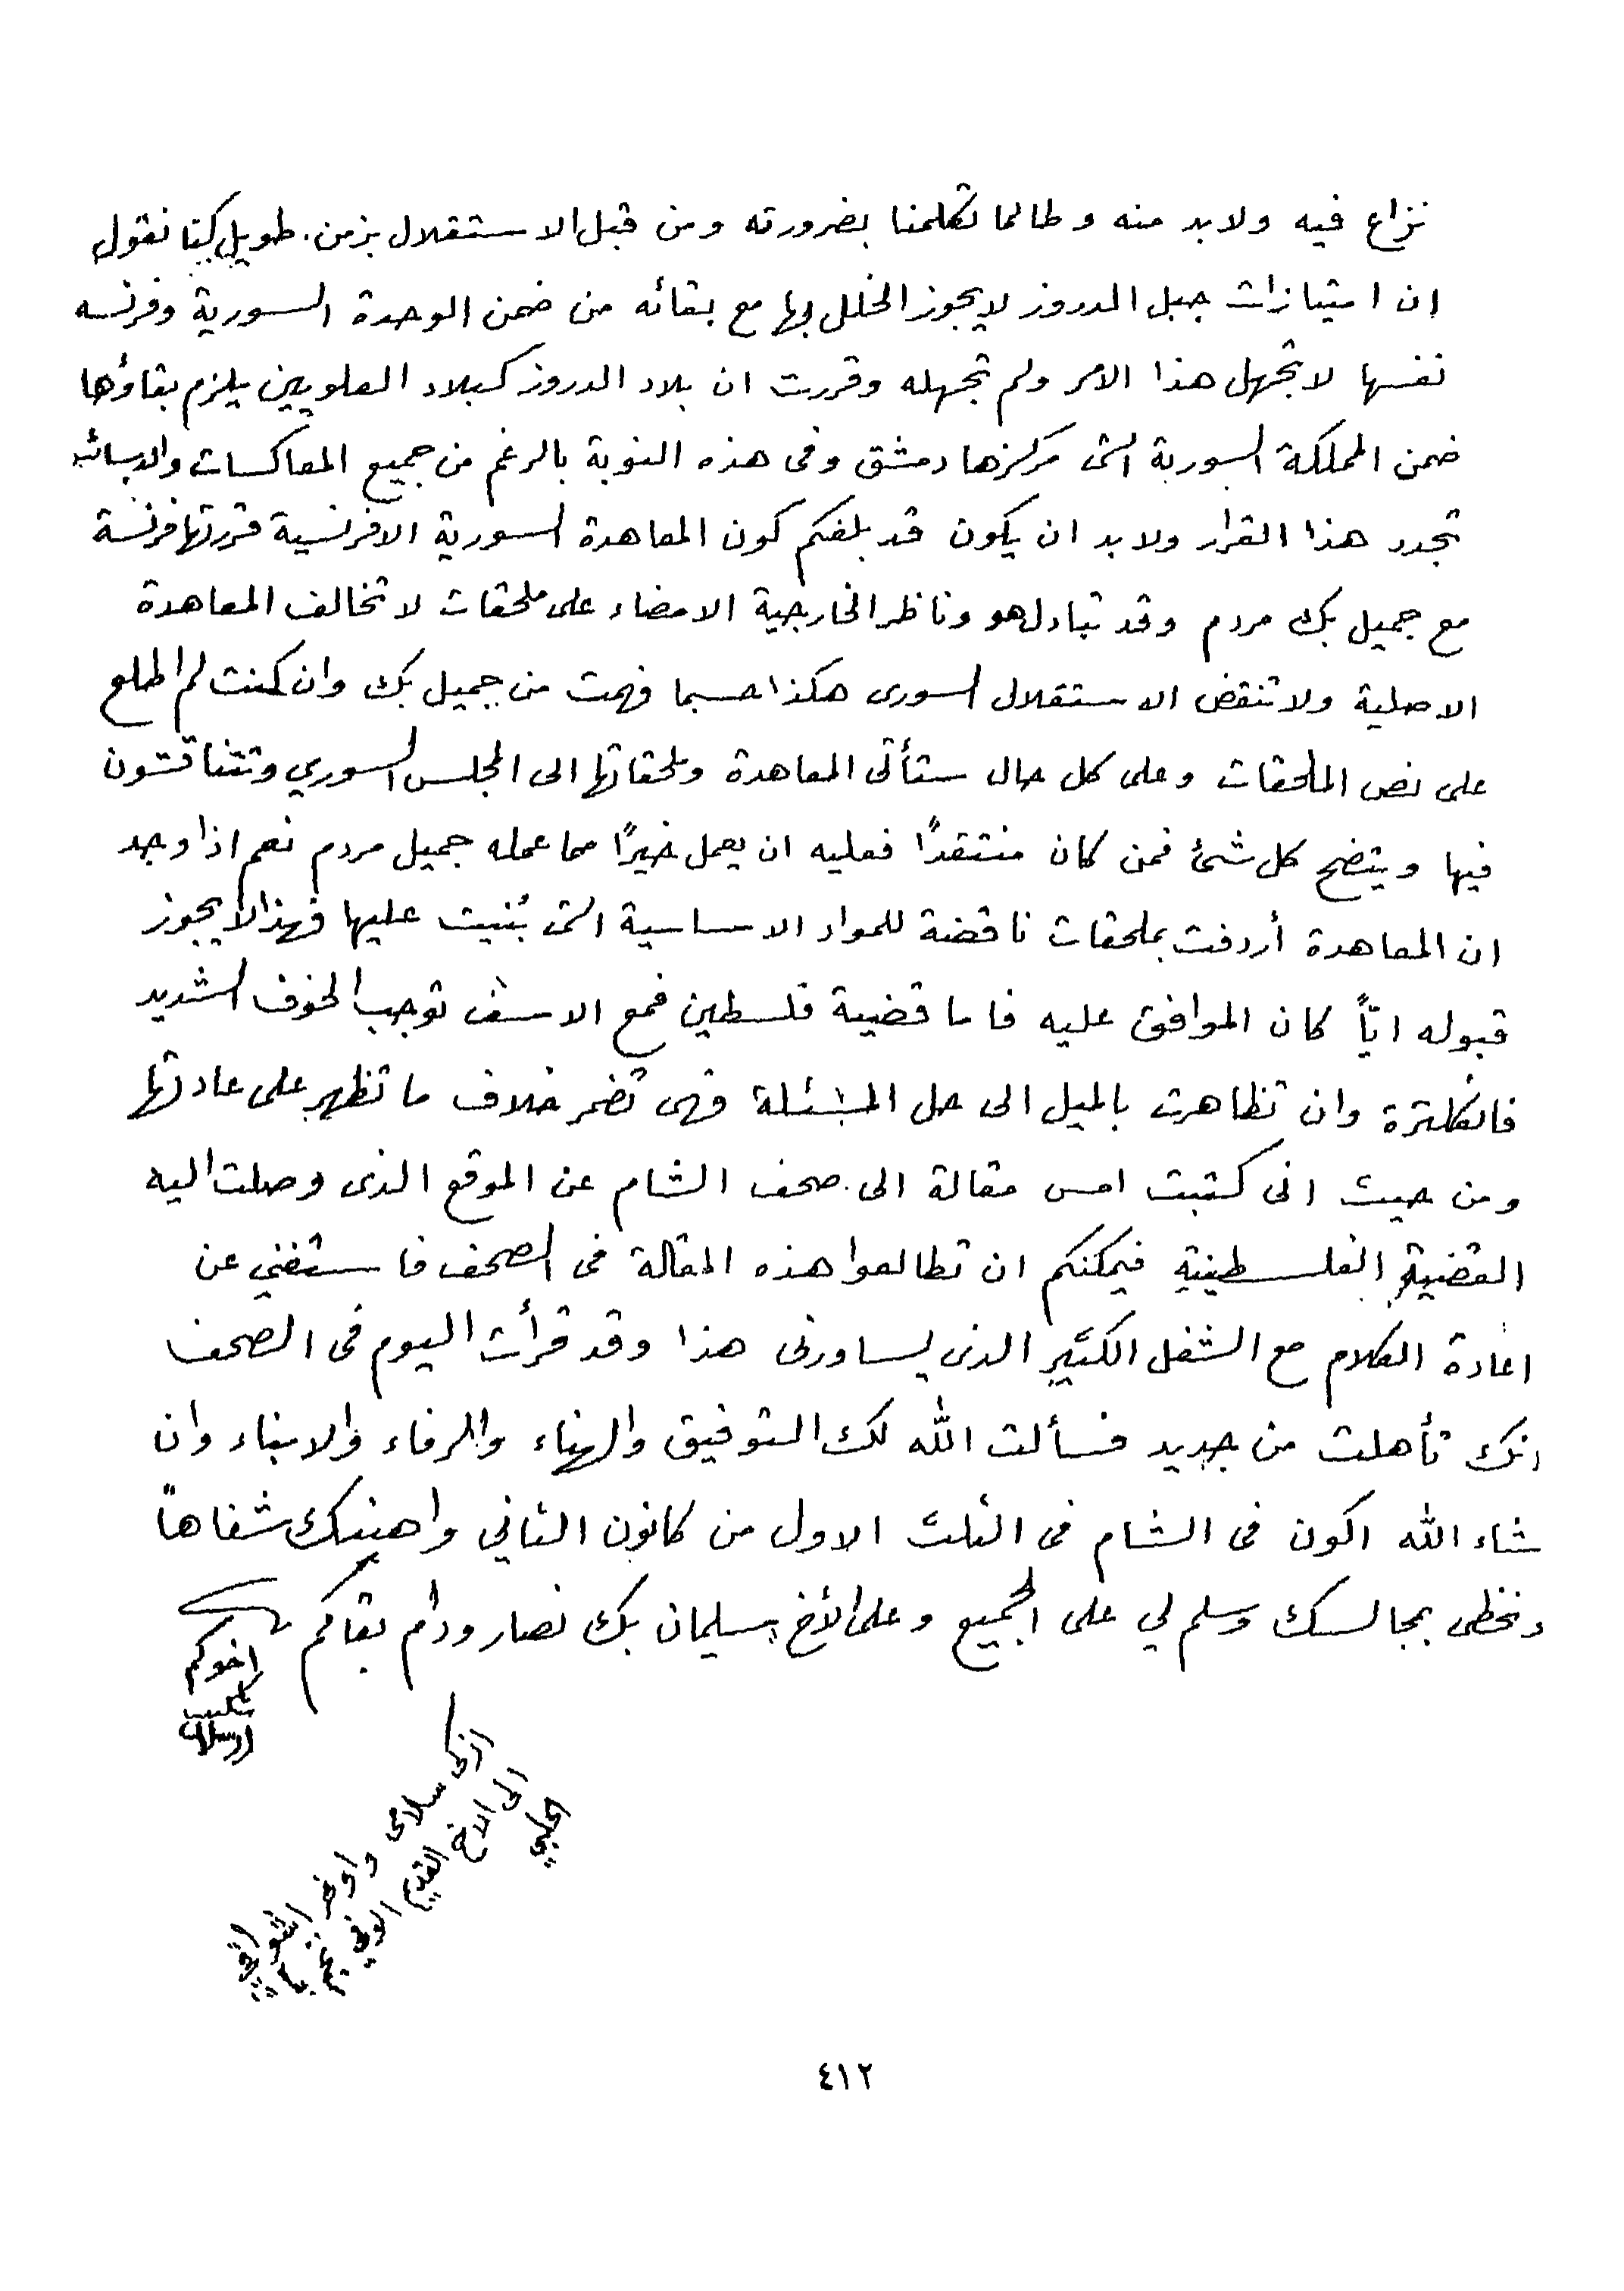 نزاع فيه ولا بد منه وطالما تكلمنا بضرورته ومن قبل الاستقلال بزمن طويل كنا نقول
ان امتيازات جبل الدروز لا يجوز الخلل بها مع بقائه من ضمن الوحدة السورية وفرنسه
نفسها لا تجهل هذا الامر ولم تجهله وقررت ان بلاد الدروز كبلاد العلويين يلزم بقاؤها
ضمن المملكة السورية التى مركزها دمشق وفى هذه النوبة بالرغم من جميع المعاكسات والدسائس
تجدد هذا القرار ولا بد ان يكون قد بلغكم كون المعاهدة السورية الافرنسية قررتها فرنسة
مع جميل بك مردم وقد تبادل هو وناظر الخارجية الامضاء على ملحقات لا تخالف المعاهدة
الاصلية ولا تنقض الاستقلال السورى هكذا حسبما فهمت من جميل بك وان كنت لم اطلع
على نص الملحقات وعلى كل حال ستأتى المعاهدة وملحقاتها الى المجلس السوري وتتناقشون
فيها ويتضح كل شئ فمن كان منتقدًا فعليه ان يعمل خيرًا مما عمله جميل مردم نعم اذا وجد
ان المعاهدة أردفت بملحقات ناقضة للمواد الاساسية التى بُنيت عليها فهذا لا يجوز
قبوله ايّاً كان الموافق عليه فاما قضية فلسطين فمع الاسف توجب الخوف الشديد
فانكلترة وان تظاهرت بالميل الى حل المسئلة فهى تضمر خلاف ما تظهر على عادتها
ومن حيث انى كتبت امس مقالة الى صحف الشام عن الموقع الذى وصلت اليه
القضية الفلسطينية فيمكنكم ان تطالعوا هذه المقالة فى الصحف فاستغني عن
اعادة الكلام مع الشغل الكثير الذى يساورنى هذا وقد قرأت اليوم فى الصحف
انك تأهلت من جديد فسألت الله لك التوفيق والهناء والرفاء والابناء وان
شاء الله اكون فى الشام فى الثلث الاول من كانون الثاني واهنئك شفاهاً
ونحظى بمجالسك وسلم لي على الجميع وعلى الأخ سليمان بك نصار ودام بقاكم
اخوكم
شكيب
ارسلان
ازكى سلامى واوفر اشواقي
الى الاخ القديم الوفي نجم بك
الحلبي
٤١٢